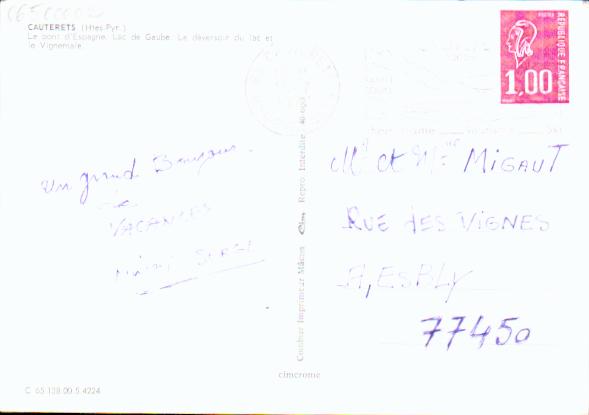 CAUTERETS (Htes-Pyr.)
Le pont d'Espagne. Lac de Gaube. Le déversoir du lac et
le Vignemale.
REPUBLIQUE FRANCAISE
1,00
Un grand Bonjour
de
VACANCES
SERGE
Combier Imprimeur Mâcon Cim Repro. Interdite
Mr et Mme MIGAUT
RUE des VIGNES
A, ESBLY
77450
cimcrome
C 65 138 00 5.4224